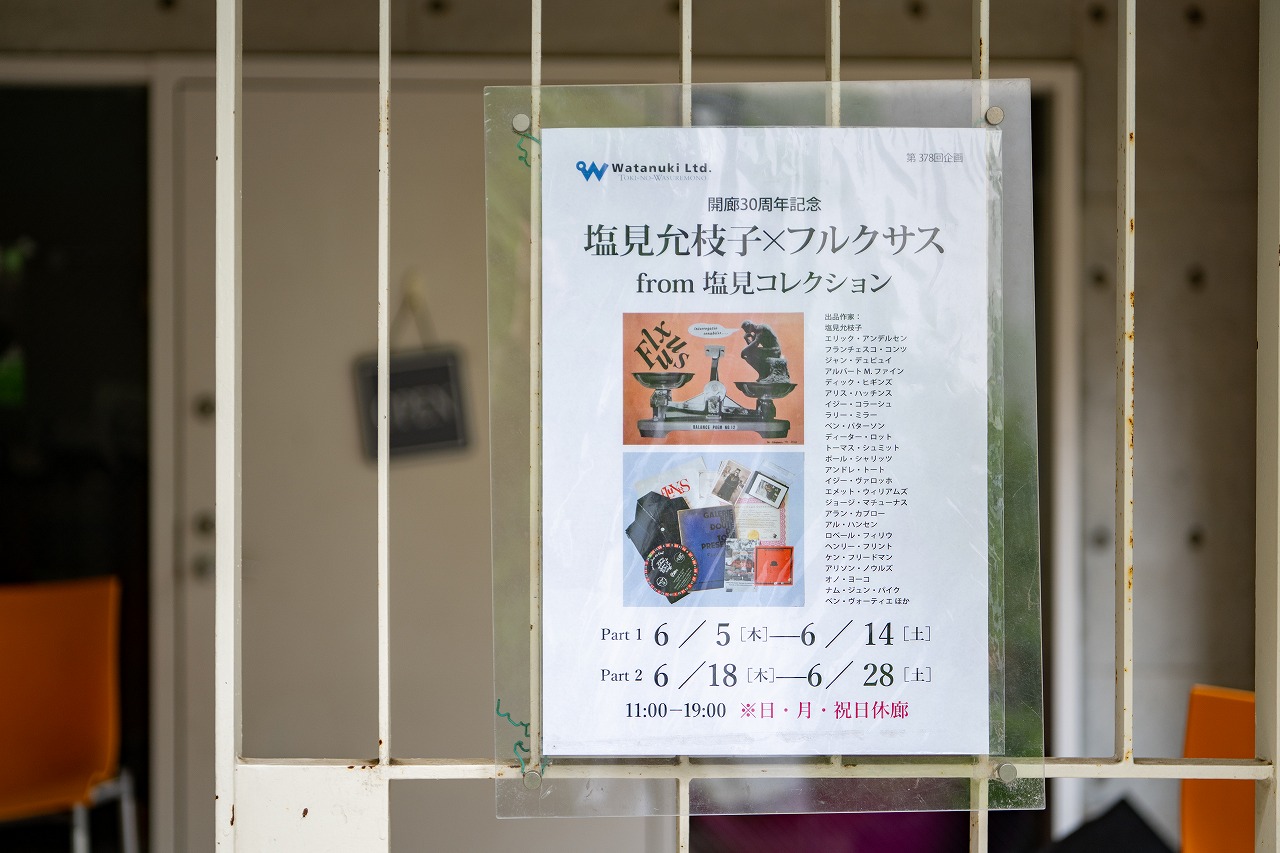 Watanuki Ltd.
TOKI-NO-WASUREMONO
第 378回企画
開廊30周年記念
塩見允枝子×フルクサス
from 塩見コレクション
Fluxus
BALANCE POEM NO.12
FluxuS
GALERIE
出品作家：
塩見允枝子
エリック・アンデルセン
フランチェスコ・コンツ
ジャン・デュピュイ
アルバート M. ファイン
ディック・ヒギンズ
アリス・ハッチンス
イジー・コラーシュ
ラリー・ミラー
ベン・パターソン
ディーター・ロット
トーマス・シュミット
ポール・シャリッツ
アンドレ・トート
イジー・ヴァロッホ
エメット・ウィリアムズ
ジョージ・マチューナス
アラン・カプロー
アル・ハンセン
ロベール・フィリウ
ヘンリー・フリント
ケン・フリードマン
アリソン・ノウルズ
オノ・ヨーコ
ナム・ジュン・パイク
ベン・ヴォーティエ ほか
Part 1 6／5［木］—6／14［土］
Part 2 6／18［木］—6／28［土］
11:00−19:00 ※日・月・祝日休廊
OPEN